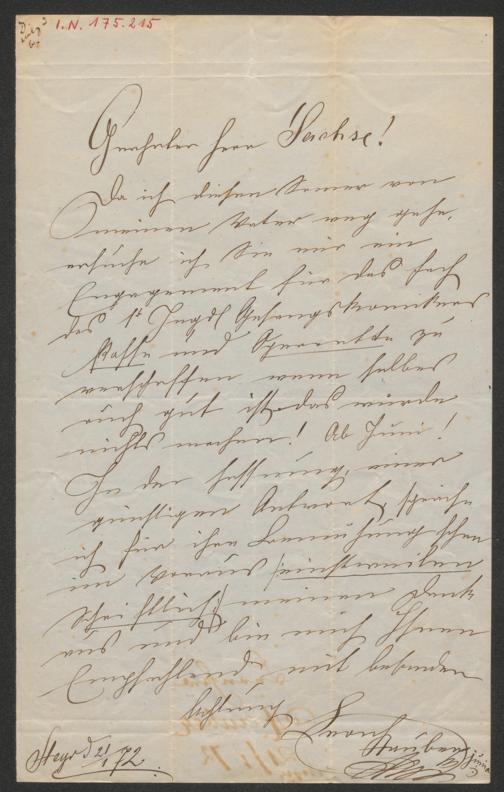 I. N. 175.215
Geehrter Herr Sachse!
Da ich diesen Somer von
meinem Vater weg gehe,
ersuche ich Sie mir ein
Engagement für das Fach
des 1t Jugdl Gesangskomikers
Posse und Operrette zu
verschaffen wenn selbes
auch gut ist das würde
nichts machen! Ab Juni!
In der Hoffnung einer
günstigen Antwort, spreche
ich für ihre Bemühung schon
im Voraus (einstweilen
schriftlich) meinen Dank
aus und bin mich Ihnen
Empfehlend mit bester
Achtung
Leon
Treuber
Steyr d 21/1 72.